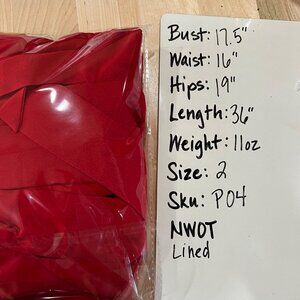 Bust: 17.5"
Waist: 16"
Hips: 19"
Length: 36"
Weight: 11oz
Size: 2
Sku: P04
NWOT
Lined